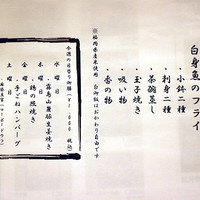 白身魚のフライ
・小鉢二種
・刺身二種
・茶碗蒸し
・玉子焼き
・吸い物
・香の物
※福岡県産米使用
白御飯はおかわり自由です
今週の日替り御膳
水曜日
霧島山麓豚生姜焼き
木曜日
鶏の照焼き
金曜日
土曜日
手ごねハンバーグ